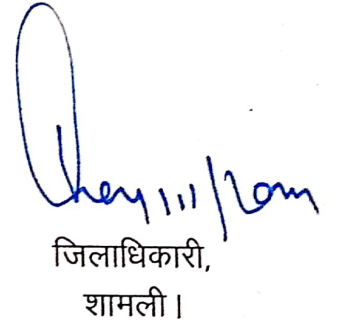 जिलाधिकारी,
शामली।